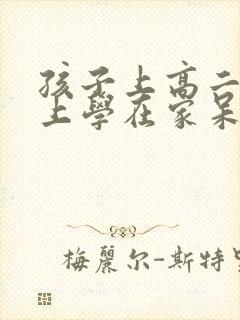 孩子上高二
上學在家呆
梅麗尔-斯特